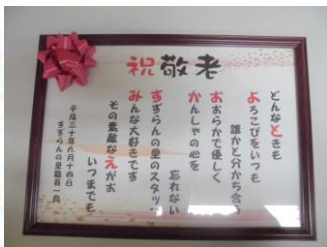 祝敬老
どんなときも
よろこびをいつも
誰かと分かち合う
おおらかで優しく
かんしゃの心を
忘れない
すずらんの里のスタッフ
みんな大好きです
その素敵なえがお
いつまでも
平成三十年九月十四日
すずらんの里職員一同